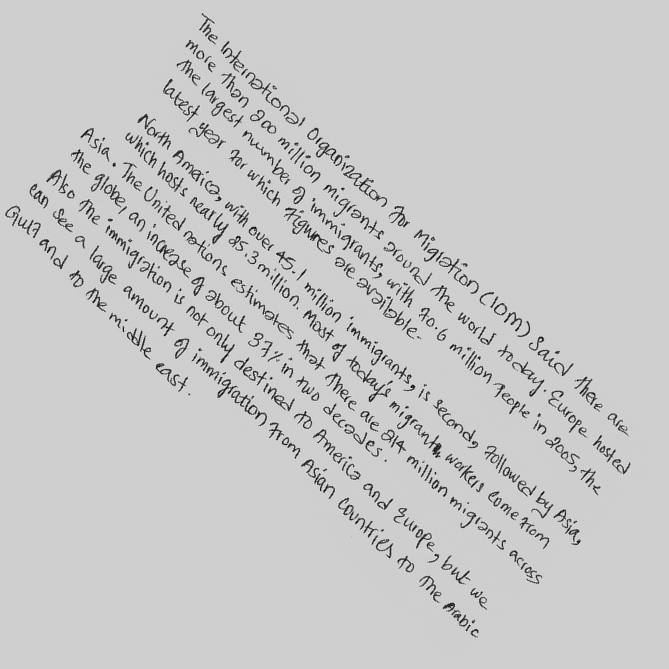 The International Organization for Migration (IOM) said there are
more than 200 million migrants around the world today. Europe hosted
the largest number of immigrants, with 70.6 million people in 2005, the
latest year for which figures are available.
North America, with over 45.1 million immigrants, is second, followed by Asia,
which hosts nearly 25.3 million. Most of today's migrants workers come from
Asia. The United nations estimates that there are 214 million migrants across
the globe, an increase of about 37% in two decades.
Also the immigration is not only destined to America and Europe, but we
can see a large amount of immigration from Asian countries to the Arabic
Gulf and to the middle east.